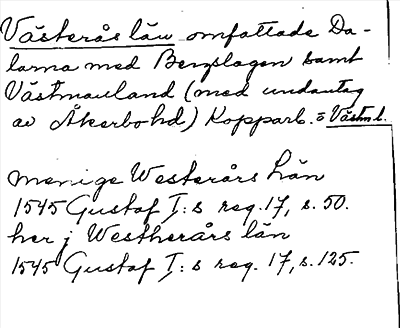 Västerås län omfattade Da-
larna med Bergslagen samt
Västmanland (med undantag
av Åkerbo hd.) Kopparb. o Västm. l.
menige Westerårs Län
1545 Gustaf I:s reg. 17, s. 50.
her j Westherårs län
1545 Gustaf I:s reg. 17, s. 125.